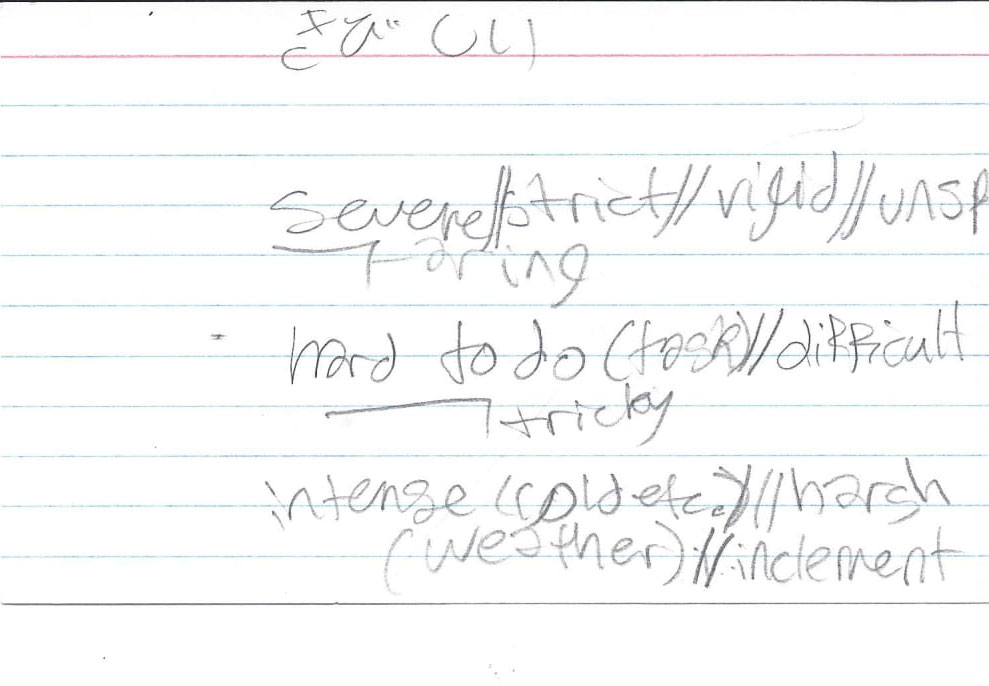 きびしい
severe//strict//rigid//unsp
aring
hard to do (task)//difficult
tricky
intense (cold etc.)//harsh
(weather)//inclement